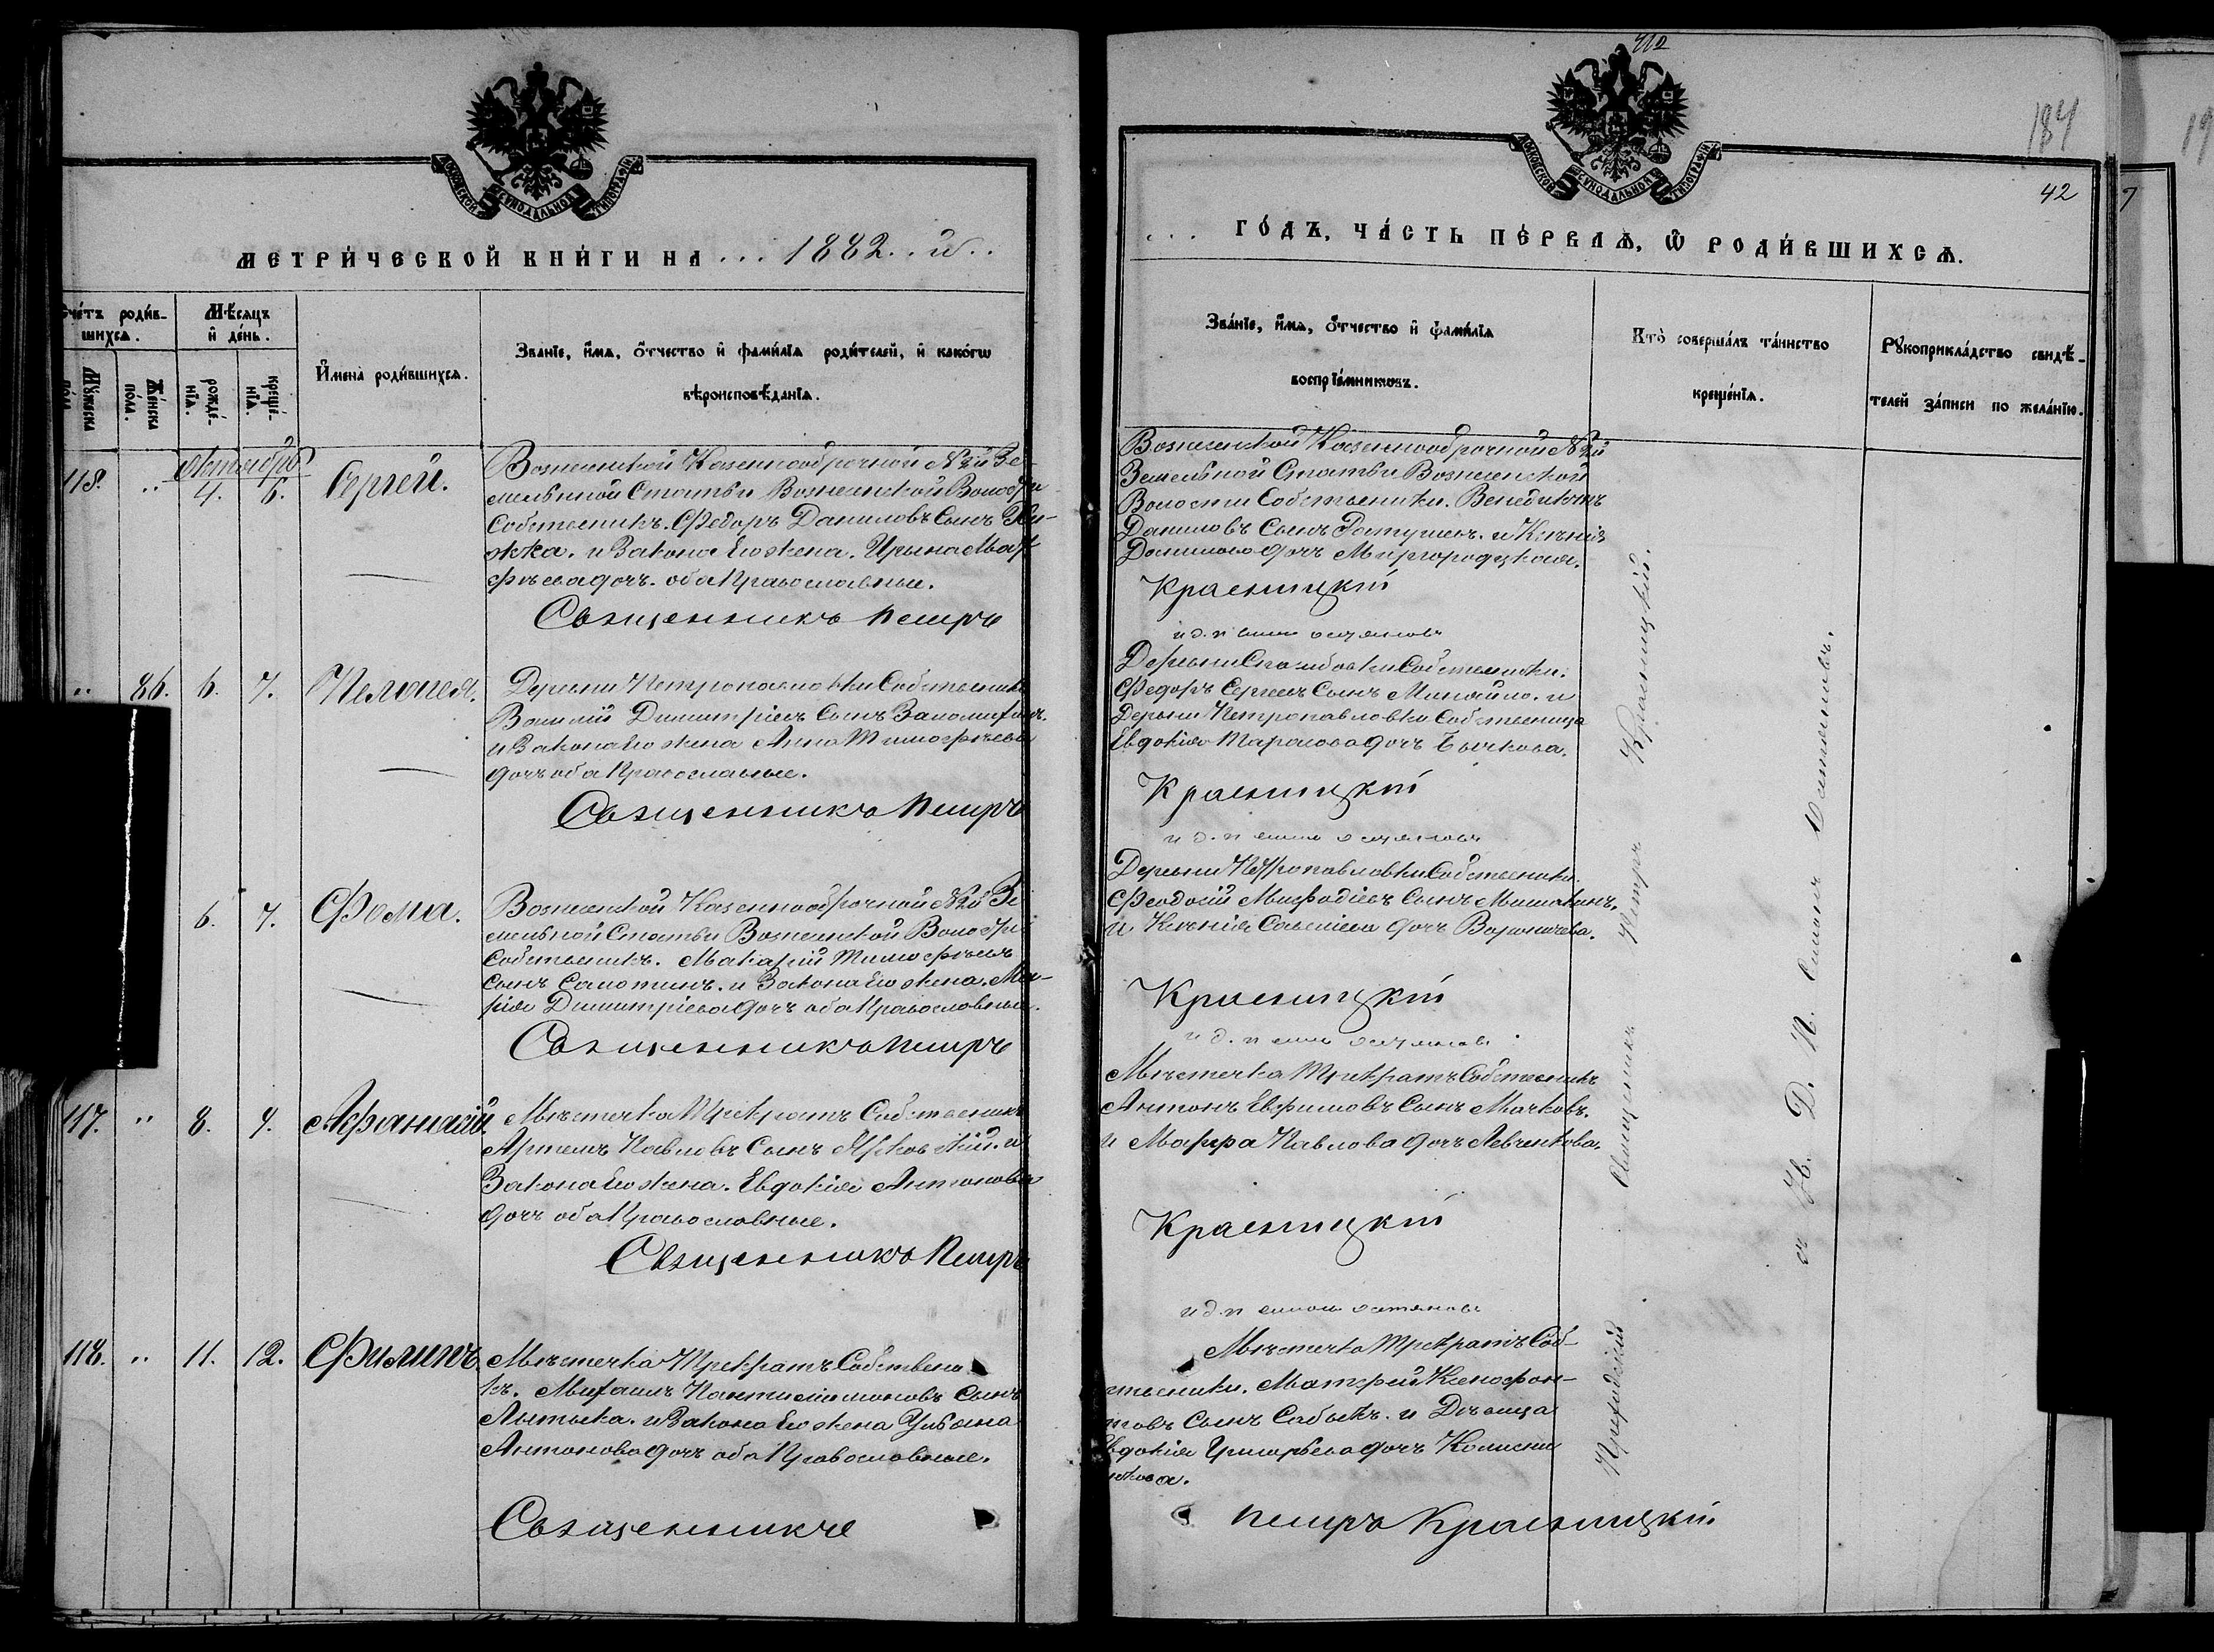 МЕТРИ́ЧЕСКОЙ КНИ́ГИ НА ... 1882..й..
Сче́тъ роди́в-
шихся.
Мѣ́сяцъ
и де́нь.
Му́жеска
по́ла.
Же́нска
по́ла.
рожде́-
нїя.
креще́-
нїя.
И҆мена̀ роди́вшихся.
Зва́нїе, и҆́мя, ѻ҆́тчество и҆ фами́лїя роди́телей, и҆ како́гѡ
вѣроисповѣ́данїя.
Октябрь
4. 6.
Сергей.
Вознесенской Казеннооброчной № 2й Зе-
мельнной Статьи Вознесенской Волости
Собственникъ. Федоръ Даниловъ Сынъ
и Законная Его жена. Ирына Мат-
фѣева дочь. оба Православные.
Священникъ Петръ
" 86. 6. 7. Пелагея.
Деревни Петропавловки Собственникъ
Василий Димитріевъ Сынъ
и Законна Его жена Анна Тимофѣева
дочь оба Православные.
Священникъ Петръ
6. 7. Фома.
Вознесенской Казеннооброчной № 2й Зе
мельной Статьи Вознесенской Волости
Собственникъ. Макарий Тимофѣевъ
Сынъ Самотинъ. и Законна Его жена. Ма-
рія Димитріева дочь оба Православные.
Священникъ Петръ
117. " 8. 9. Афанасій.
Мѣстечка Трикратъ Собственникъ
Артемъ Павловъ Сынъ и
Законна Его жена. Евдокія Антонова
дочь оба Православные.
Священникъ Петръ
118. " 11. 12. Филипъ
Мѣстечка Трикратъ Собственни
къ. Михаилъ Пантилимоновъ Сынъ
и Законна Его жена Ульяна
Антонова дочь оба Православные.
Священникъ
412
184
42
... ГО́ДЪ, ЧА́СТЬ ПЕ́РВАЯ, Ѿ РОДИ́ВШИХСЯ.
Зва́нїе, и҆́мя, ѻ҆́тчество и҆ фами́лїя
воспрїе́мникѡвъ.
Кто̀ соверша́лъ та́инство
креще́нїя.
Рꙋкоприкла́дство свидѣ́-
телей за́писи по жела́нїю.
Вознесенской Казеннооброчной № 2й
Земельной Статьи Вознесенской
Волости Собственники. Венедиктъ
Даниловъ Сынъ и Ксенія
Данилова дочь Миргородцкая.
Красницкій
и д. п
Деревни Собственники.
Федоръ Сергеевъ Сынъ Минайло. и
Деревни Петропавловки Собственница
Евдокія Тарасова дочь Бычкова.
Красницкій
и д. п
Деревни Петропавловки Собственники.
Феодосий Мефодіевъ Сынъ
и Ксенія Савельева дочь
Красницкій
и д. п
Мѣстечка Трикратъ Собственникъ
Антонъ Евфимовъ Сынъ Мачковъ.
и Марфа Павлова дочь Левченкова.
Красницкій
и д. п
Мѣстечка Трикратъ Соб-
ственники. Матфей Ксенофон-
товъ Сынъ и Дѣвица
Евдокія Григорьева дочь
Петръ Красницкій
Приходскій Священникъ Петръ Красницкій.
съ И. Д. П.